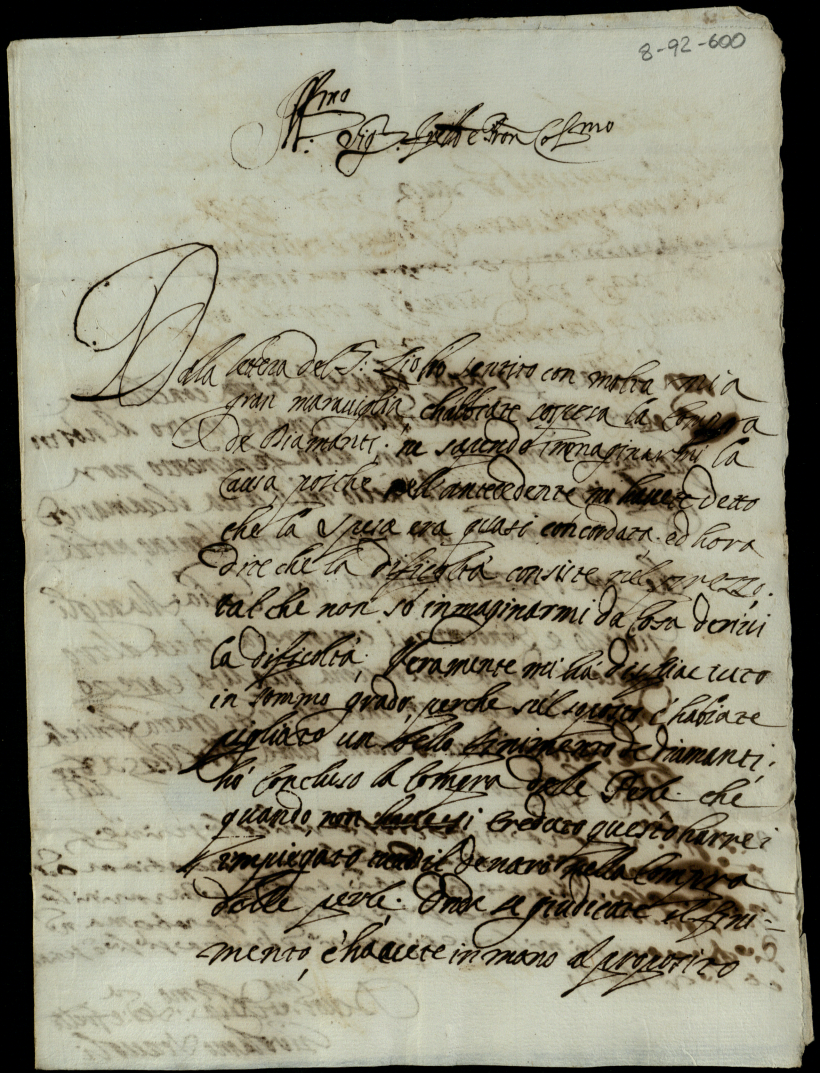 8-92-600
Ill.mo
Sig.r e Pron Col.mo
Dalla lettera del S.r Zio ho sentito con molta mia
gran maraviglia, c'habbiate la Compra
de Diamanti. ne sapendo immaginarmi la
causa, poiche nell'antecedente mi havete detto
che la spesa era quasi concordata. ed hora
dite che la dificoltà consiste nel prezzo.
tal che non sò inmaginarmi da cosa derivi
la dificoltà; Veramente mi hà dispiaciuto
in sommo grado, perche c'habiate
pigliato un bello finimento de diamanti.
hò concluso la Compra delle Perle. che
quando non havessi creduto questo harrei
impiegato tutto il denaro nella Compra
delle perle. Onde se giudicate il fini-
mento, c'havete in mano al proposito